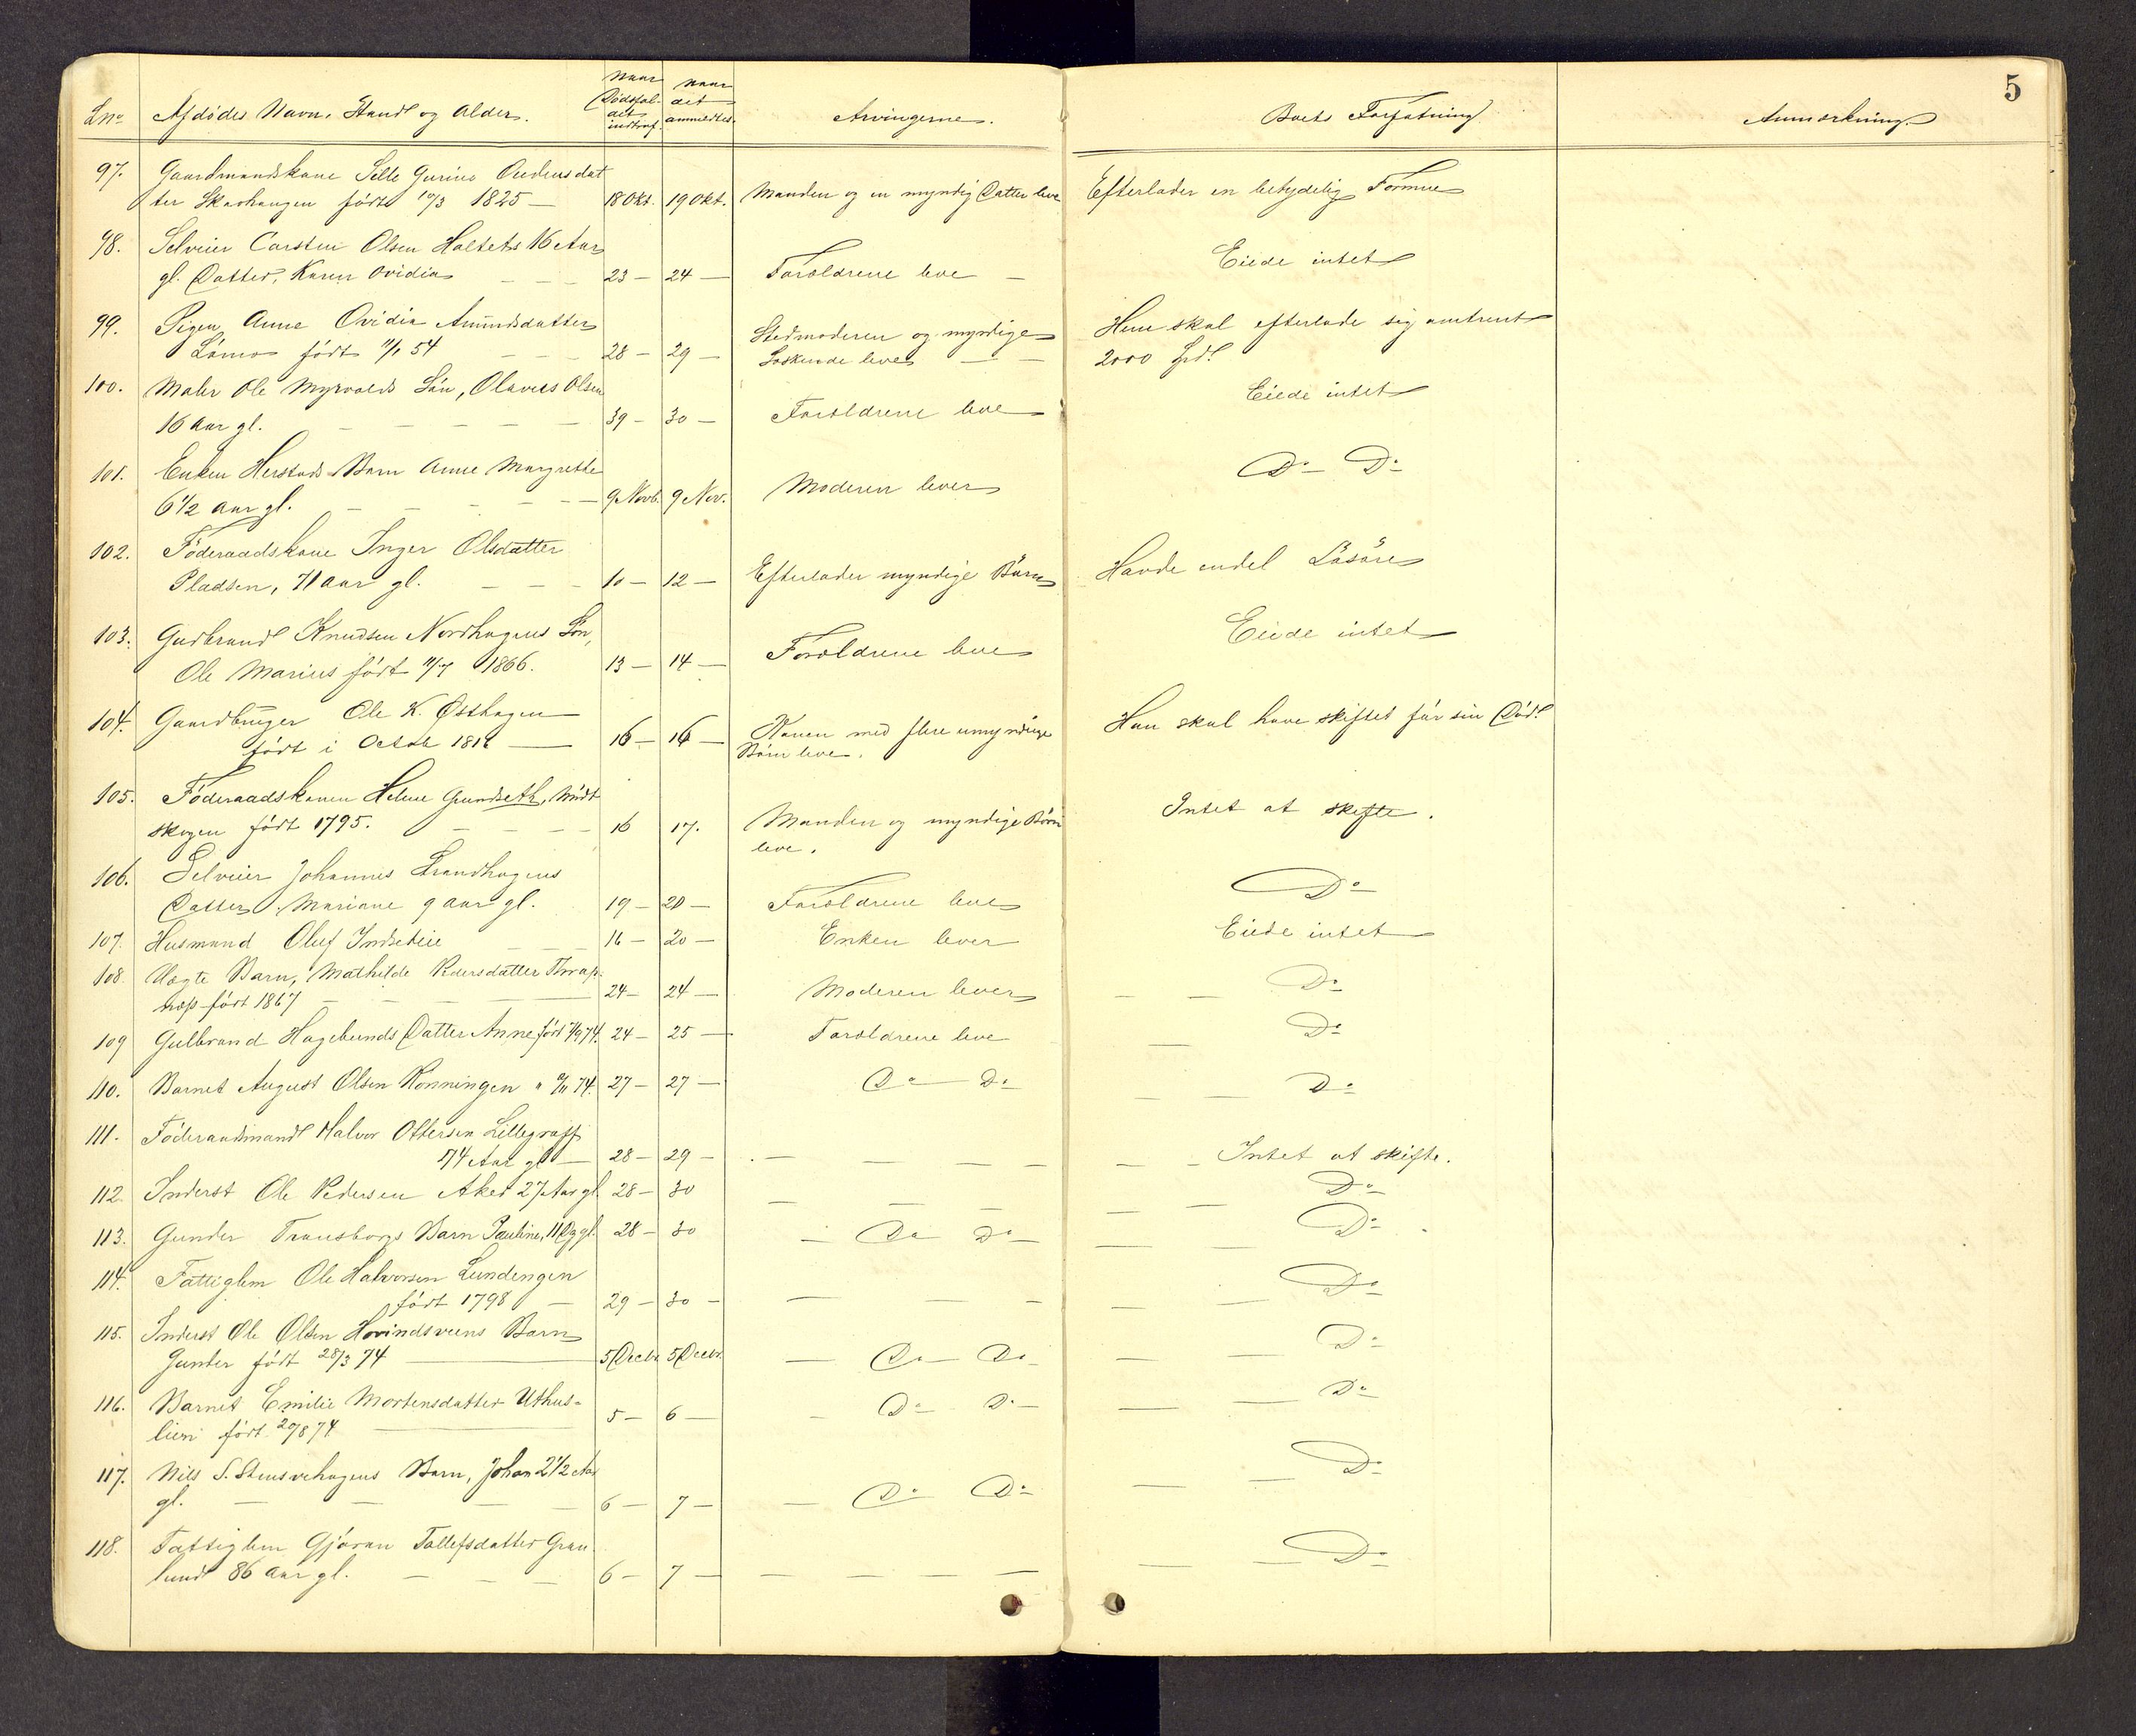 5
Lno Afdødes Navn, Stand og Alder. Naar Dødsfaldet indtraf. Naar det anmeldtes. Arvingerne. Boets Forfatning Anmærkning
97. Gaardmandskone Gurine Andersdat
ter Skarhaugen født 10/3 1825 — 18 Okt. 19 Okt. Manden og en myndig Datter leve Efterlader en betydelig Formue
98. Selveier Carsten Olsen Holtets 16 Aar
gl. Datter, Karen Ovidia — — — 23 — 24 — Forældrene leve — Eiede intet
99. Pigen Anne Ovidia Amundsdatter Stedmoderen og myndige Hun skal efterlade sig omtrent
født 11/1 54 — — 28 — 29 — Søskende leve — — 2000 Spdl
100. Maler Ole Myrvolds Søn, Olaves Olsen
16 Aar gl. — — — — — 39 — 30 — Forældrene leve Eiede intet
101. Enken Herstads Barn Anne Margrethe
6 1/2 Aar gl. — — — — — 9 Novb. 9 Nov. Moderen lever Do Do
102. Föderaadskone Inger Olsdatter
Pladsen, 71 Aar gl. — — — 10 — 12 — Efterlader myndige Børn Havde endel Løsøre
103. Gudbrand Knudsen Nordhagens Søn,
Ole Marius født 11/7 1866. 13 — 14 — Forældrene leve Eiede intet
104. Gaardbruger Ole K. Østhagen
født i Octob 1816 — 16 — 16 — Konen med flere umyndige Han skal have skiftet før sin Død.
Børn leve.
105. Föderaadskonen Helene Grundseth, Midt
skogen født 1795. — — — — 16 17. Manden og myndige Børn Intet at skifte.
leve.
106. Selveier Johannes Strandhagens
Datter Mariane 9 aar gl. 19 — 20 — Forældrene leve Do
107. Husmand Oluf Indseteie — — — 16 — 20 — Enken lever Eiede intet
108. Uægte Barn, Mathilde Pedersdatter
født 1867 — — — — 24 — 24 — Moderen lever — — Do
109 Gulbrand Hagelunds Datter Anne født 7/9 74. 24 — 25 — Forældrene leve — Do
110. Barnet August Olsen Rønningen " 9/11 74. 27 — 27 — Do — Do — — Do
111. Föderaadsmand Halvor Ottersen
74 Aar gl — 28 — 29 — — — — — — — Intet at skifte.
112. Inderst Ole Pedersen Aker 27 Aar gl. 28 — 30 — — — — — Do
113. Gunder Transborgs Barn Pauline, 11 Dg gl. 28 — 30 — Do Do — — — Do
114. Fattiglem Ole Halvorsen Lundengen
født 1798 — 29 — 30 — — — — — — Do
115. Inderst Ole Olsen Hovindsveens Barn
Gunder født 28/3 74 — 5 Decbr 5 Decbr. — Do — Do — — Do
116. Barnet Emilie Mortensdatter Uthus-
lien født 20/8 74 — 5 — 6 — — Do — Do — — — Do
117. Nils S. Stensvehagens Barn, Johan 2 1/2 Aar
gl. — — — — 6 — 7 — — Do Do — — Do
118. Fattiglem Gjøran Tollefsdatter Gran
lund 86 Aar gl. — — — 6 — 7 — — — — — — — Do